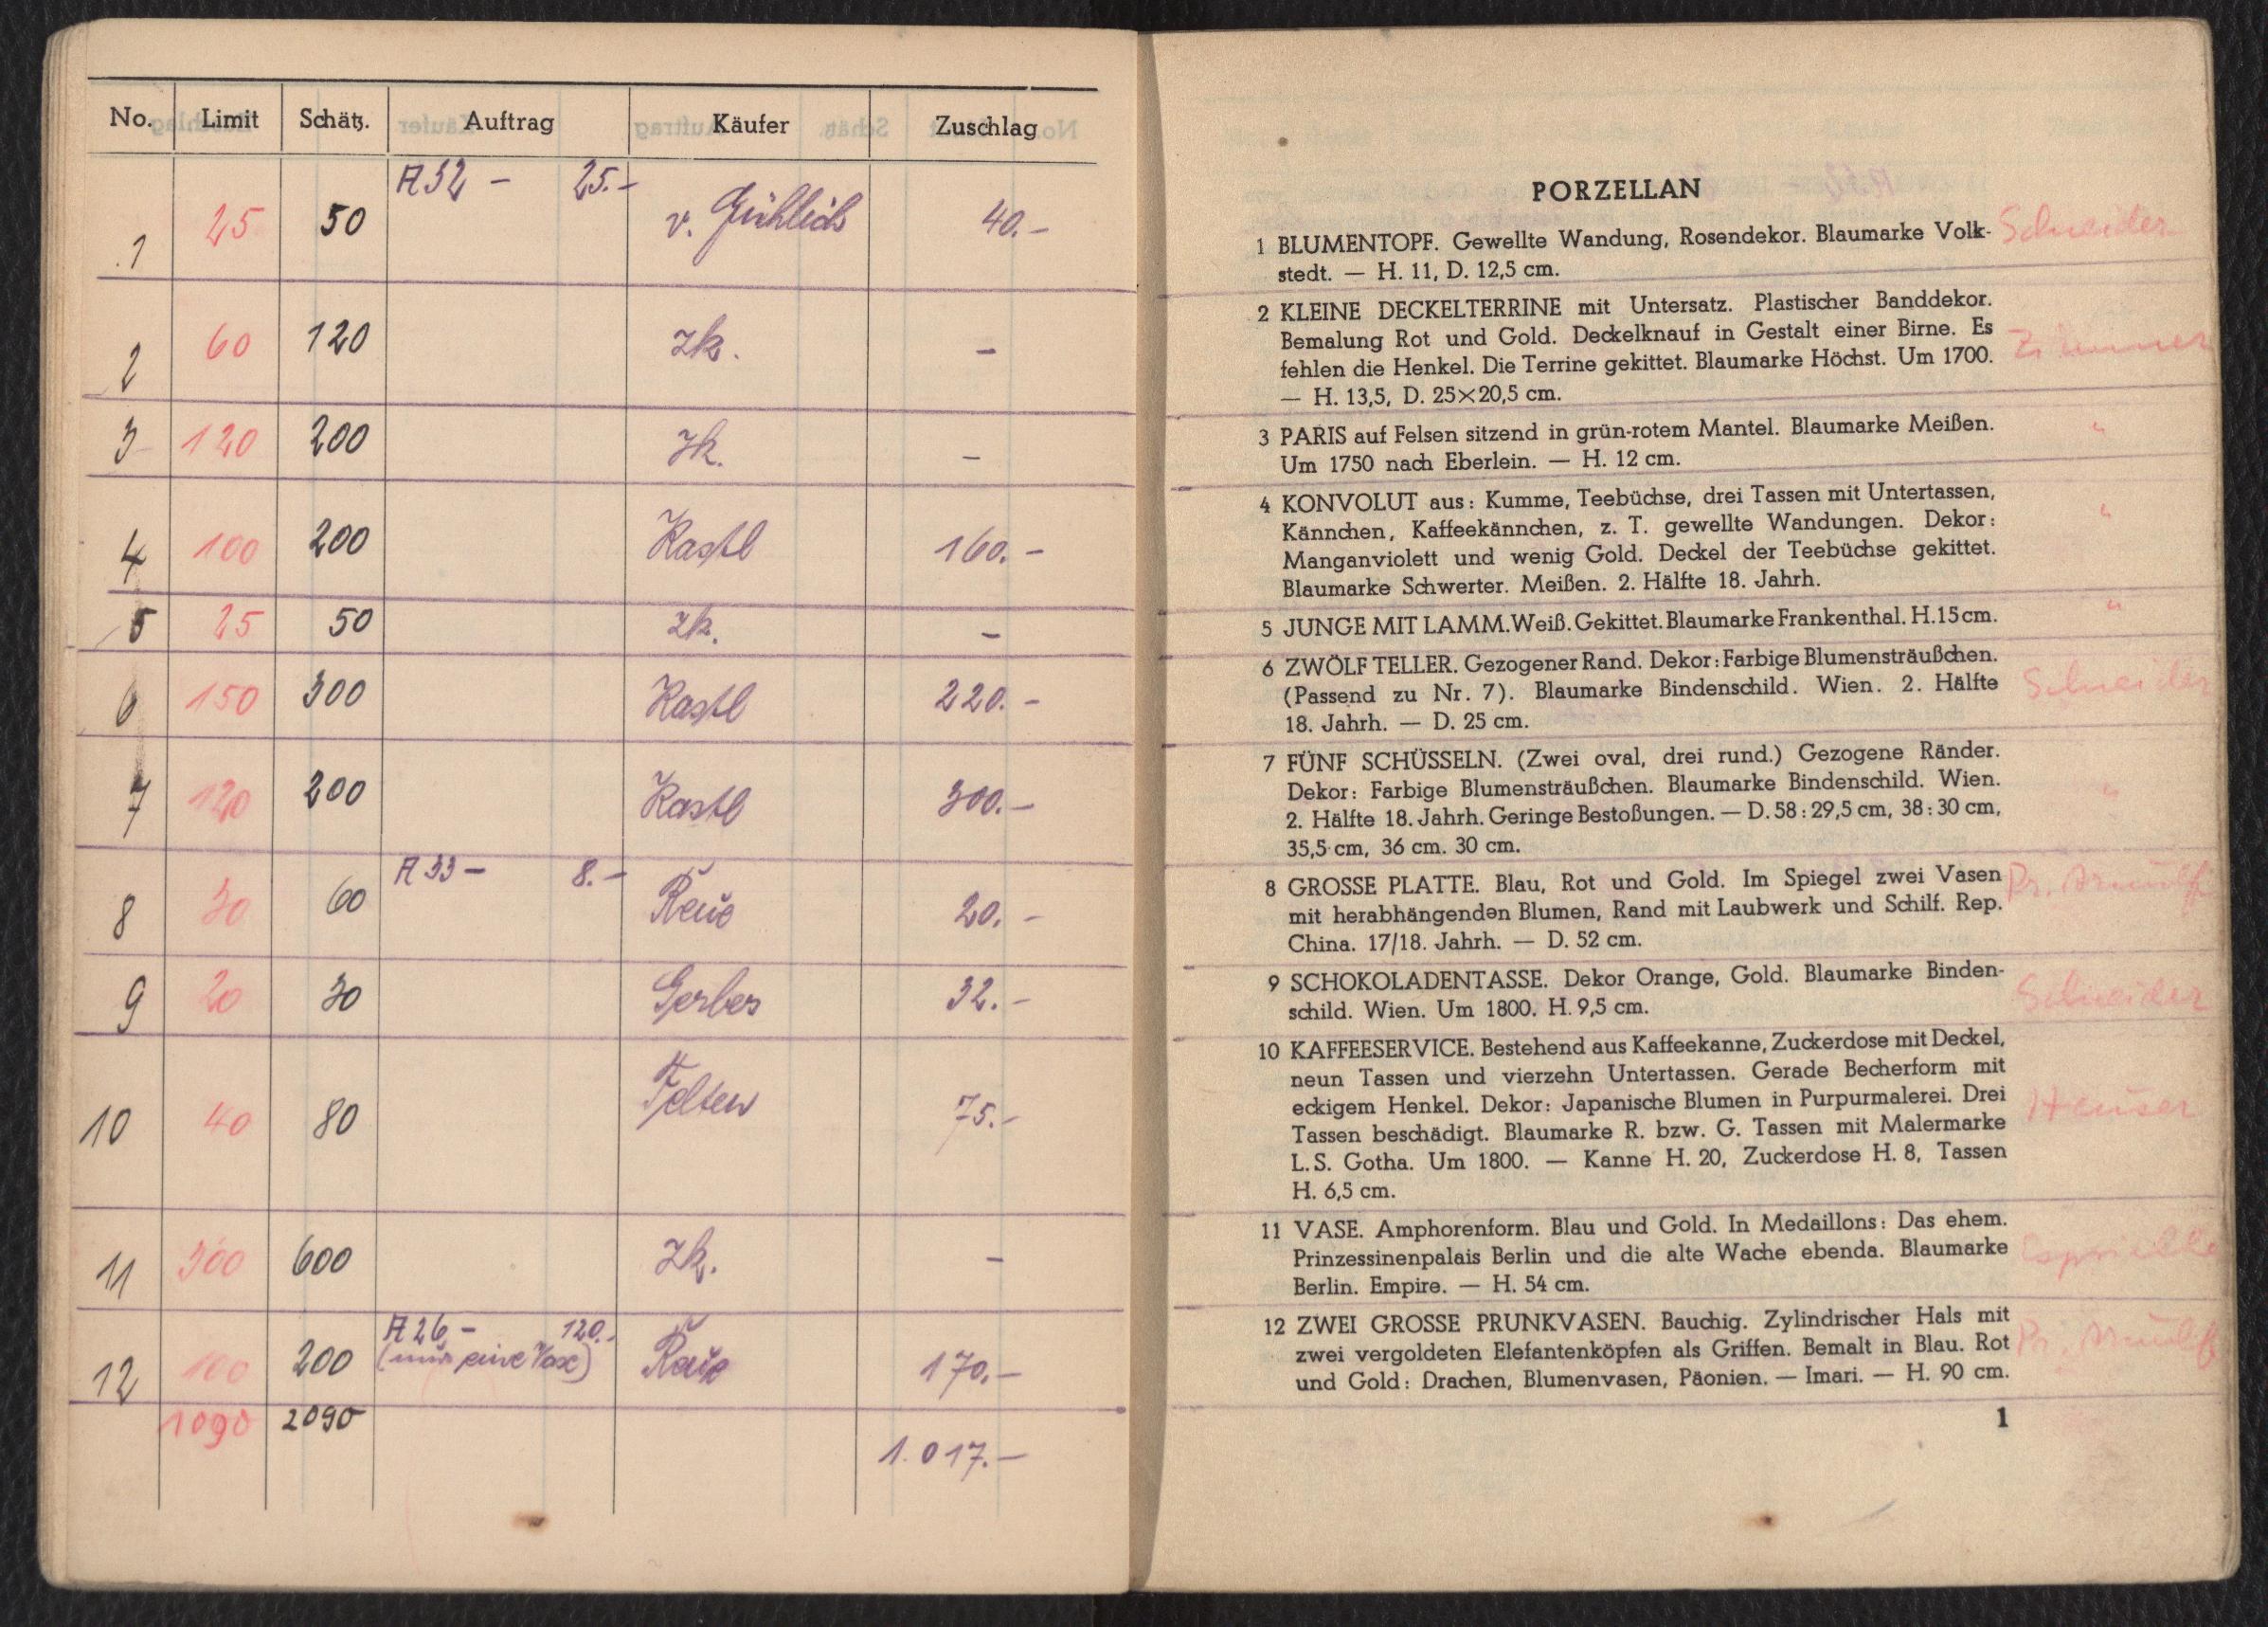 No. Limit Schätz. Auftrag Käufer Zuschlag
A 32 - 25.-
1 25 50 v. 40.-
2 60 120 zk. -
3 120 200 zk. -
4 100 200 Kastl 160.-
5 25 50 zk. -
6 150 300 Kastl 220.-
7 120 200 Kastl 300.-
A 33 - 8.-
8 30 60 20.-
9 20 30 Gerber 32.-
10 40 80 Felten 75.-
11 300 600 zk. -
A 26 - 120.-
12 100 200 (nur eine Vase) 170.-
1090 2090
1.017.-
PORZELLAN
1 BLUMENTOPF. Gewellte Wandung, Rosendekor. Blaumarke Volk- Schneider
stedt. — H. 11, D. 12,5 cm.
2 KLEINE DECKELTERRINE mit Untersatz. Plastischer Banddekor.
Bemalung Rot und Gold. Deckelknauf in Gestalt einer Birne. Es
fehlen die Henkel. Die Terrine gekittet. Blaumarke Höchst. Um 1700.
— H. 13,5, D. 25×20,5 cm.
3 PARIS auf Felsen sitzend in grün-rotem Mantel. Blaumarke Meißen. "
Um 1750 nach Eberlein. — H. 12 cm.
4 KONVOLUT aus: Kumme, Teebüchse, drei Tassen mit Untertassen, "
Kännchen, Kaffeekännchen, z. T. gewellte Wandungen. Dekor:
Manganviolett und wenig Gold. Deckel der Teebüchse gekittet.
Blaumarke Schwerter. Meißen. 2. Hälfte 18. Jahrh.
5 JUNGE MIT LAMM. Weiß. Gekittet. Blaumarke Frankenthal. H. 15 cm. "
6 ZWÖLF TELLER. Gezogener Rand. Dekor: Farbige Blumensträußchen.
(Passend zu Nr. 7). Blaumarke Bindenschild. Wien. 2. Hälfte Schneider
18. Jahrh. — D. 25 cm.
7 FÜNF SCHÜSSELN. (Zwei oval, drei rund.) Gezogene Ränder.
Dekor: Farbige Blumensträußchen. Blaumarke Bindenschild. Wien. "
2. Hälfte 18. Jahrh. Geringe Bestoßungen. — D. 58 : 29,5 cm, 38 : 30 cm,
35,5 cm, 36 cm. 30 cm.
8 GROSSE PLATTE. Blau, Rot und Gold. Im Spiegel zwei Vasen Pr. Arnulf
mit herabhängenden Blumen, Rand mit Laubwerk und Schilf. Rep.
China. 17/18. Jahrh. — D. 52 cm.
9 SCHOKOLADENTASSE. Dekor Orange, Gold. Blaumarke Binden- Schneider
schild. Wien. Um 1800. H. 9,5 cm.
10 KAFFEESERVICE. Bestehend aus Kaffeekanne, Zuckerdose mit Deckel,
neun Tassen und vierzehn Untertassen. Gerade Becherform mit
eckigem Henkel. Dekor: Japanische Blumen in Purpurmalerei. Drei Heuser
Tassen beschädigt. Blaumarke R. bzw. G. Tassen mit Malermarke
L. S. Gotha. Um 1800. — Kanne H. 20, Zuckerdose H. 8, Tassen
H. 6,5 cm.
11 VASE. Amphorenform. Blau und Gold. In Medaillons: Das ehem.
Prinzessinenpalais Berlin und die alte Wache ebenda. Blaumarke
Berlin. Empire. — H. 54 cm.
12 ZWEI GROSSE PRUNKVASEN. Bauchig. Zylindrischer Hals mit
zwei vergoldeten Elefantenköpfen als Griffen. Bemalt in Blau. Rot Pr. Arnulf
und Gold: Drachen, Blumenvasen, Päonien. — Imari. — H. 90 cm.
1